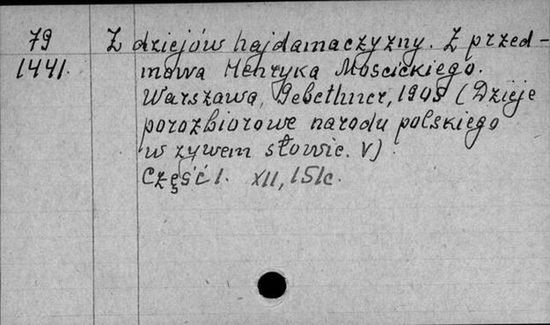 79 Z dziejów hajdamaczyzny. Z przed-
1441. mową Henryka Mościckiego.
Warszawa, Gebethner, 1905 (Dzieje
porozbiorowe narodu polskiego
w żywem słowie. V)
Część 1. XII, 151c.